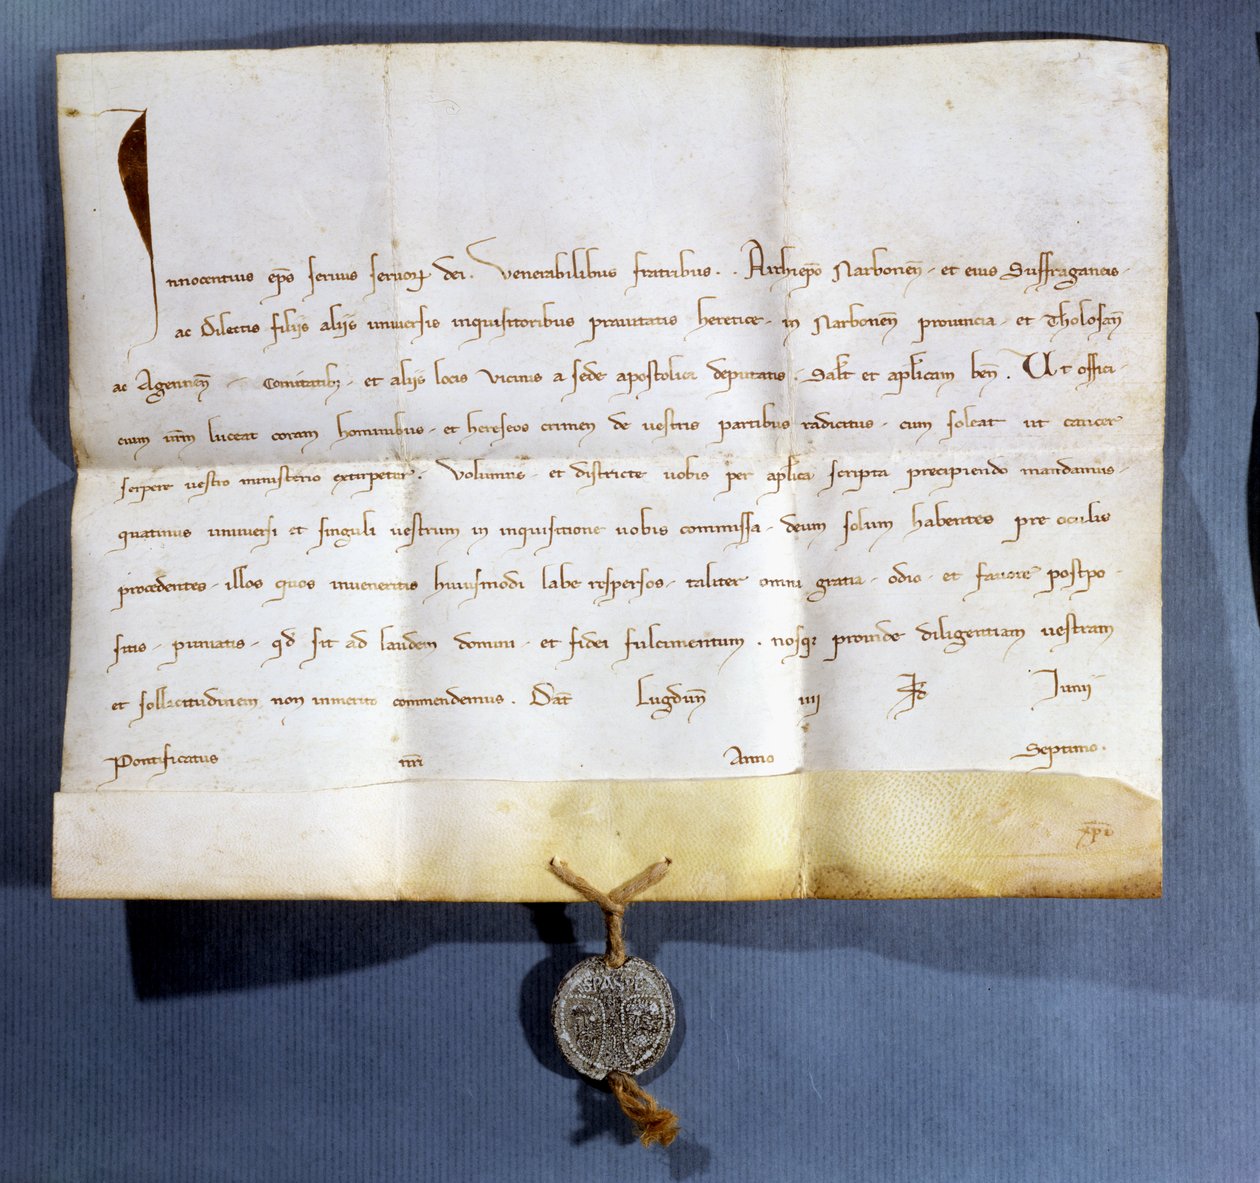 Innocentius ep̄s servus servoꝝ dei. Venerabilibus fratribus . . Archiep̄o Narbonen̄ et eius Suffraganeis
ac Dilectis filiis aliis universis inquisitoribus pravitatis heretice in Narbonen̄ provincia et Tholosan̄
ac Agennen̄ Comitatibꝫ et aliis locis vicinis a sede apostolica deputatis. Salt̄ et apl̄icam ben̄. Ut offici
cium vr̄m luceat coram hominibus et hereseos crimen de vestris partibus radicitus cum soleat ut cancer
serpere vestro ministerio extirpetur. Volumus et districte vobis per apl̄ica scripta precipiendo mandamus
quatinus universi et singuli vestrum in inquisitione vobis commissa deum solum habentes pre oculis
procedentes illos quos inveneritis huiusmodi labe respersos taliter omni gratia odio et favore postpo
sitis puniatis qd̄ sit ad laudem domini et fidei fulcimentum. nosqꝫ proinde diligentiam vestram
et sollicitudinem non inmerito commendemus. Dat̄ Lugdun̄ iiij Kl̄ Junij
Pontificatus nr̄i Anno Septimo.
xp̄i
SPASPE